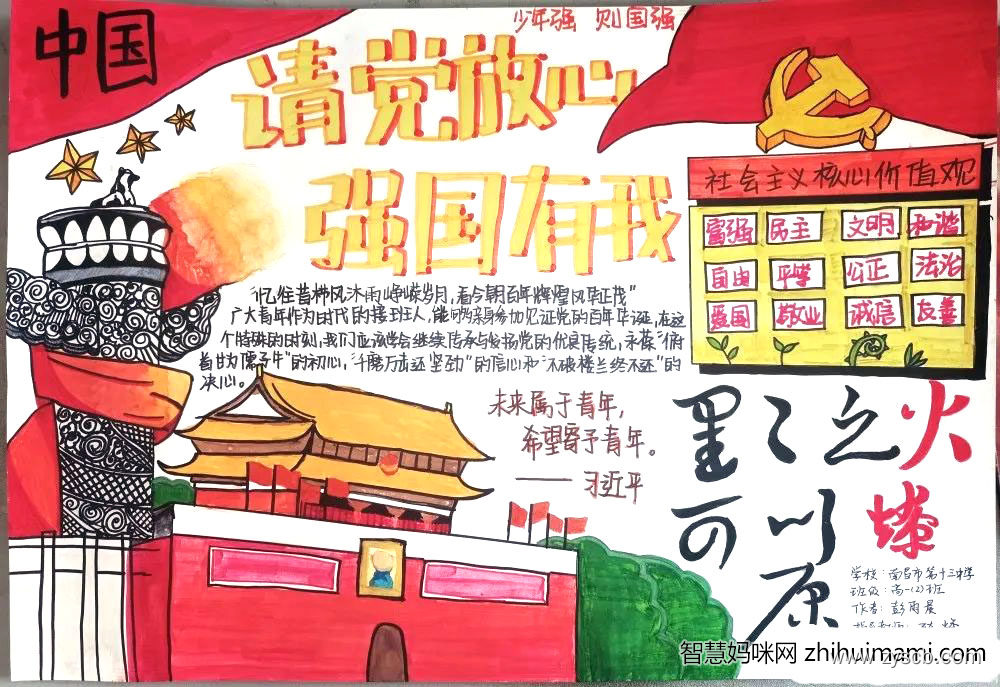 中国
少年强 则国强
请党放心
强国有我
社会主义核心价值观
富强 民主 文明 和谐
自由 平等 公正 法治
爱国 敬业 诚信 友善
"忆往昔栉风沐雨峥嵘岁月,看今朝百年辉煌风华正茂"
广大青年作为时代的接班人,能够亲身参加见证党的百年华诞,在这
个特殊的时刻,我们应该学会继续传承与发扬党的优良传统,永葆"俯
首甘为孺子牛"的初心,"千磨万击还坚劲"的信心和"不破楼兰终不还"的
决心。
未来属于青年,
希望寄予青年。
—— 习近平
星星之火
可以燎
原
学校:南昌市第十三中学
班级:高一(2)班
作者:彭雨晨
智慧妈咪网 zhihuimami.com
www.zysco.com